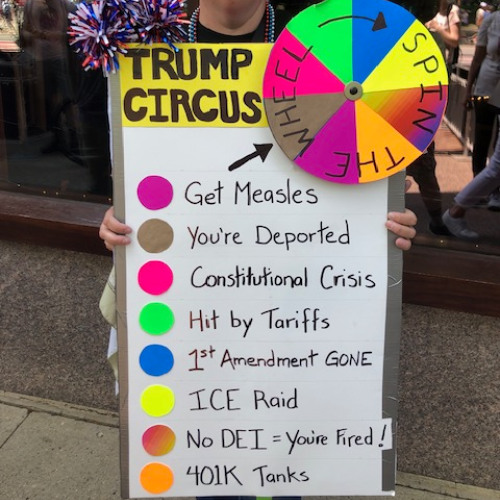 TRUMP
CIRCUS
SPIN
THE
WHEEL
Get Measles
You're Deported
Constitutional Crisis
Hit by Tariffs
1st Amendment GONE
ICE Raid
No DEI = You're Fired!
401K Tanks